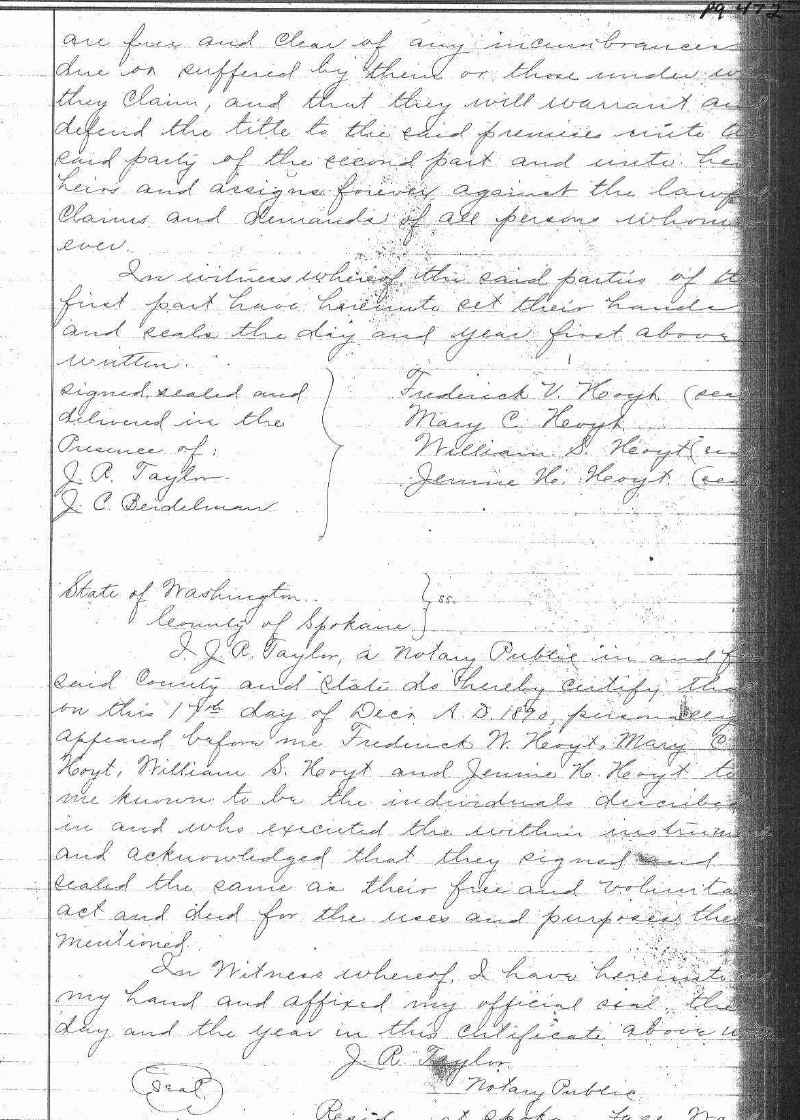 pg 472
are free and clear of any incumbrances
due or suffered by them or those under
they claim, and that they will warrant and
defend the title to the said premises unto
said party of the second part and unto her
heirs and assigns forever, against the
claims and demands of all persons
ever.
In witness whereof the said parties of
first part have hereunto set their hands
and seals the day and year first above
written.
signed sealed and
delivered in the
Presence of:
J. R. Taylor.
J. C. Beidelman
Frederick V. Hoyt (sea
Mary C. Hoyt
William S. Hoyt (
Jennie H. Hoyt (sea
State of Washington
County of Spokane } ss.
I J. R. Taylor, a Notary Public in and
said County and State do hereby certify
on this day of Decr. A. D. 1890, personally
appeared before me Frederick W. Hoyt, Mary C
Hoyt, William S. Hoyt and Jennie H. Hoyt to
me known to be the individuals described
in and who executed the within
and acknowledged that they signed and
sealed the same as their free and
act and deed for the uses and purposes
mentioned.
In Witness whereof, I have hereunto
my hand and affixed my official seal the
day and the year in this certificate above
J. R. Taylor
Seal
Notary Public
at